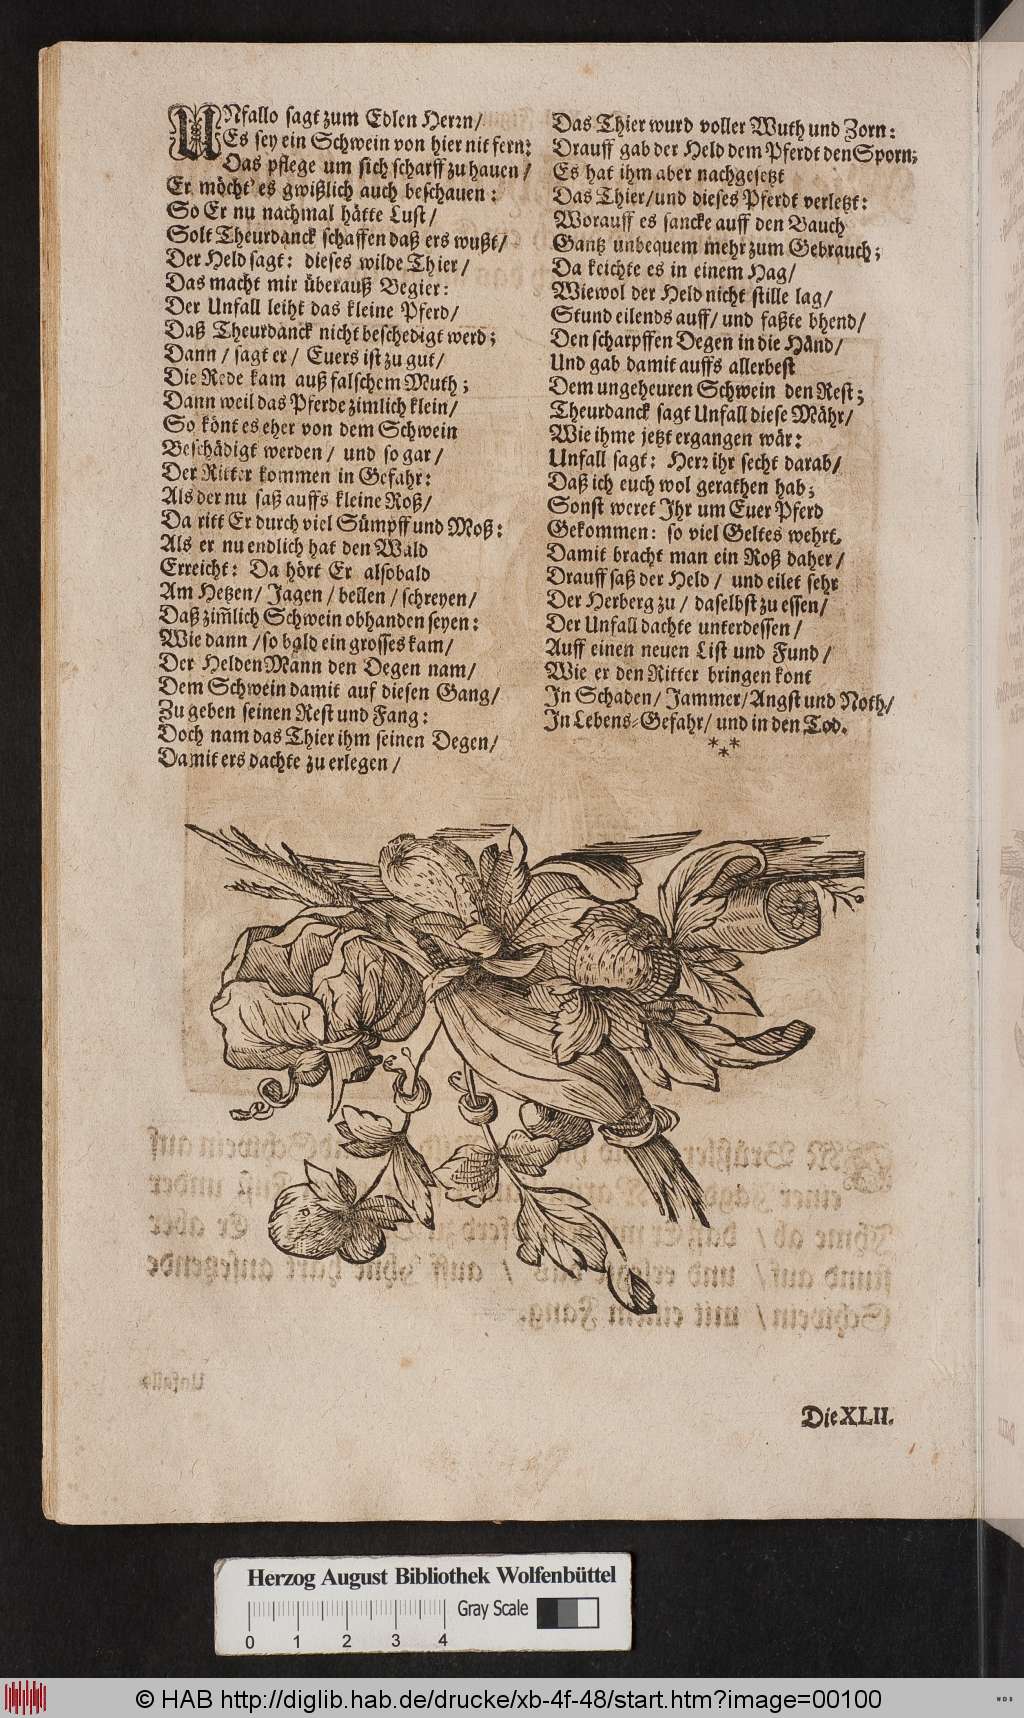 UNfallo sagt zum Edlen Herrn/
Es sey ein Schwein von hier nit fern:
Das pflege um sich scharff zu hauen/
Er möcht' es gwißlich auch beschauen:
So Er nu nachmal hätte Lust/
Solt Theurdanck schaffen daß ers wußt/
Der Held sagt: dieses wilde Thier/
Das macht mir überauß Begier:
Der Unfall leiht das kleine Pferd/
Daß Theurdanck nicht beschedigt werd;
Dann/ sagt er/ Euers ist zu gut/
Die Rede kam auß falschem Muth;
Dann weil das Pferde zimlich klein/
So könt es eher von dem Schwein
Beschädigt werden/ und so gar/
Der Ritter kommen in Gefahr:
Als der nu saß auffs kleine Roß/
Da ritt Er durch viel Sümpff und Moß:
Als er nu endlich hat den Wald
Erreicht: Da hört Er alsobald
Am Hetzen/ Jagen/ bellen/ schreyen/
Daß zim̃lich Schwein obhanden seyen:
Wie dann/ so bald ein grosses kam/
Der Helden Mann den Degen nam/
Dem Schwein damit auf diesen Gang/
Zu geben seinen Rest und Fang:
Doch nam das Thier ihm seinen Degen/
Damit ers dachte zu erlegen/
Das Thier wurd voller Wuth und Zorn:
Drauff gab der Held dem Pferdt den Sporn;
Es hat ihm aber nachgesetzt
Das Thier/ und dieses Pferdt verletzt:
Worauff es sancke auff den Bauch
Gantz unbequem mehr zum Gebrauch;
Da keichte es in einem Hag/
Wiewol der Held nicht stille lag/
Stund eilends auff/ und faßte bhend/
Den scharpffen Degen in die Händ/
Und gab damit auffs allerbest
Dem ungeheuren Schwein den Rest;
Theurdanck sagt Unfall diese Mähr/
Wie ihme jetzt ergangen wär:
Unfall sagt: Herr ihr secht darab/
Daß ich euch wol gerathen hab;
Sonst weret Ihr um Euer Pferd
Gekommen: so viel Geltes wehrt.
Damit bracht man ein Roß daher/
Drauff saß der Held/ und eilet sehr
Der Herberg zu/ daselbst zu essen/
Der Unfall dachte unterdessen/
Auff einen neuen List und Fund/
Wie er den Ritter bringen kont
In Schaden/ Jammer/ Angst und Noth/
In Lebens-Gefahr/ und in den Tod.
***
Die XLII.
Herzog August Bibliothek Wolfenbüttel
Gray Scale
0 1 2 3 4
© HAB http://diglib.hab.de/drucke/xb-4f-48/start.htm?image=00100